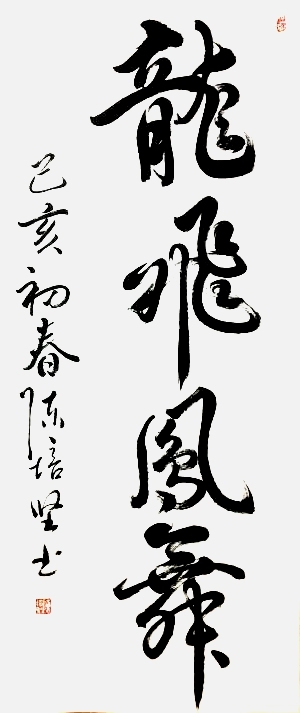 龍飛鳳舞
己亥初春陈培坚书